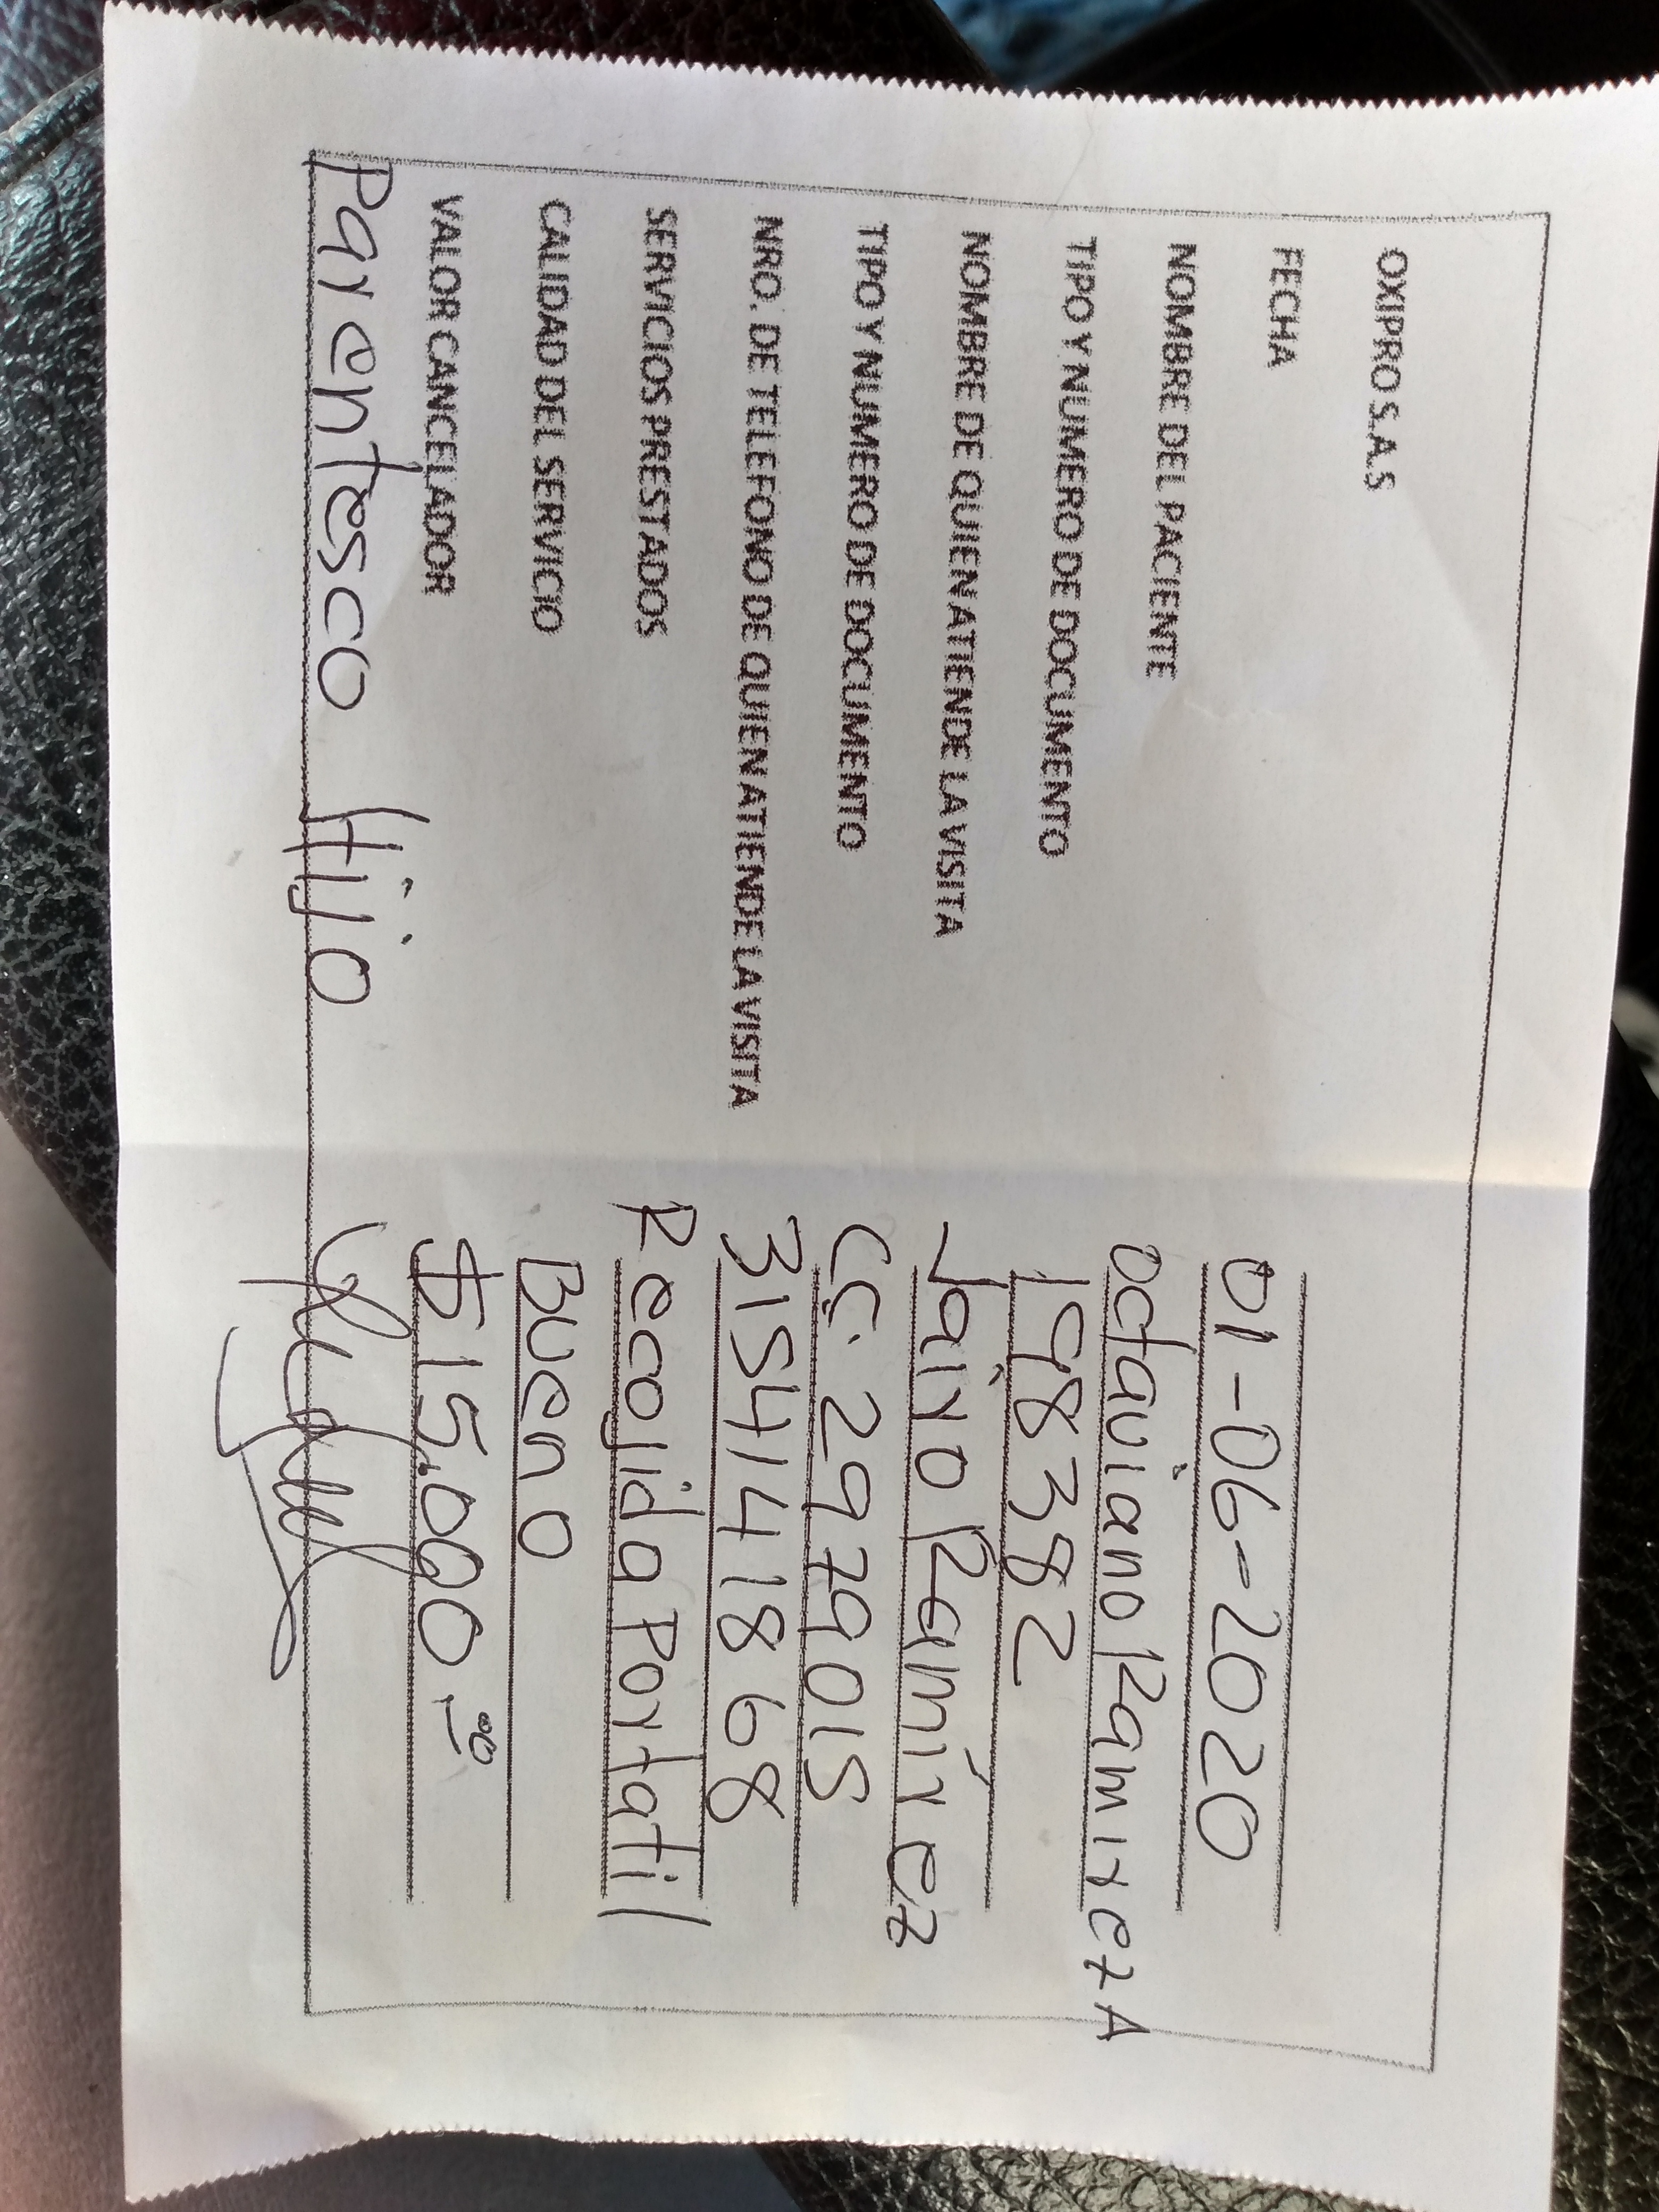 OXIPRO S.A.S
FECHA 01-06-2020
NOMBRE DEL PACIENTE Octaviano Ramirez A
TIPO Y NUMERO DE DOCUMENTO 198382
NOMBRE DE QUIEN ATIENDE LA VISITA Jairo Ramírez
TIPO Y NUMERO DE DOCUMENTO CC. 2979015
NRO. DE TELEFONO DE QUIEN ATIENDE LA VISITA 3154141868
SERVICIOS PRESTADOS Recojida Portatil
CALIDAD DEL SERVICIO Bueno
VALOR CANCELADOR $15.000.00
Parentesco Hijo